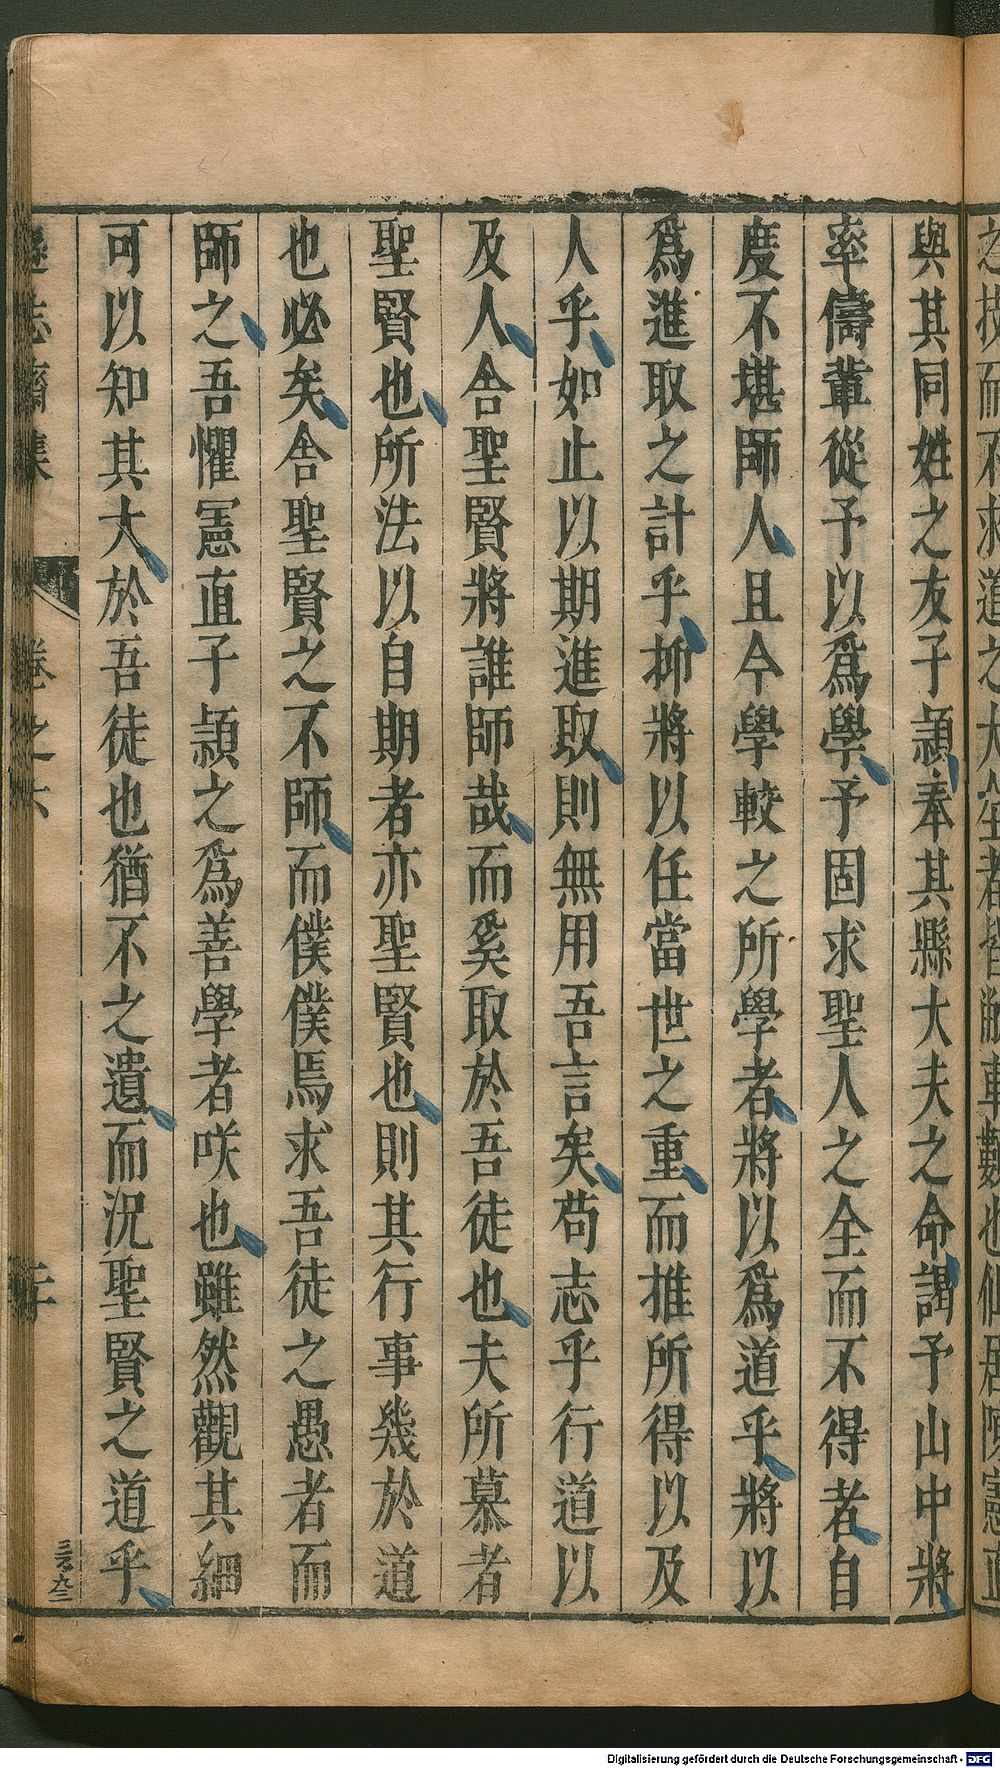 與其同姓之友子潁奉其縣大夫之命謁予山中將
率儔軰從予以爲學予固求聖人之全而不得者自
度不堪師人且今學較之所學者將以爲道乎將以
爲進取之計乎抑將以任當世之重而推所得以及
人乎如止以期進取則無用吾言矣苟志乎行道以
及人舍聖賢將誰師哉而奚取於吾徒也夫所慕者
聖賢也所法以自期者亦聖賢也則其行事幾於道
也必矣舍聖賢之不師而僕僕焉求吾徒之愚者而
師之吾懼憲直子潁之爲善學者咲也雖然觀其細
可以知其大於吾徒也猶不之遺而況聖賢之道乎
遜志齋集 卷之六
Digitalisierung gefördert durch die Deutsche Forschungsgemeinschaft - DFG